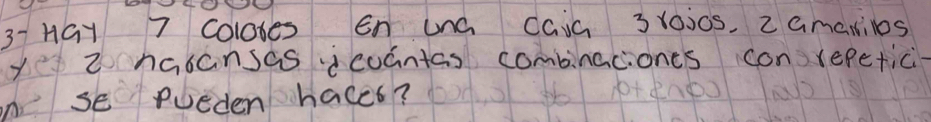 3- HaY 7 colores En una caja 3 rojos, 2 amarillos
y 2 naranjas ¿cuántas combinaciones con repetici-
n se pueden hacer?